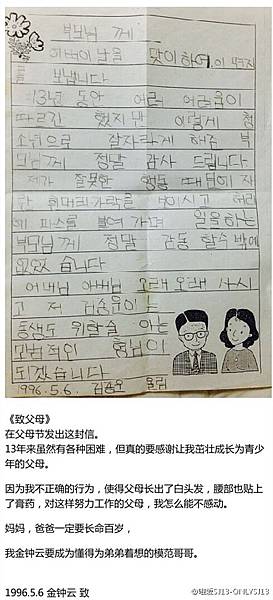 부모님 께
어버이 날을 맞이하여 이 편지
를 보냅니다
13년 동안 여러 어려움이
따르긴 했지만 이렇게 청
소년으로 잘 자라게 해준 부
모님께 정말 감사 드립니다
제가 잘못한 행동 때문에
흰머리가락을 보이시고 허리
에 파스를 붙여 가며 일을 하는
부모님께 정말 감동 할수 밖에
없었습니다
어머님 아버님 오래 오래 사시
고 저 김종운이
동생도 위할줄 아는
모범적인 형님이
되겠습니다
1996. 5. 6. 김종운 올림
《致父母》
在父母节发出这封信。
13年来虽然有各种困难，但真的要感谢让我茁壮成长为青少
年的父母。
因为我不正确的行为，使得父母长出了白头发，腰部也贴上
了膏药，对这样努力工作的父母，我怎么能不感动。
妈妈，爸爸一定要长命百岁，
我金钟云要成为懂得为弟弟着想的模范哥哥。
1996.5.6 金钟云 致
SJ13-ONLYSJ13